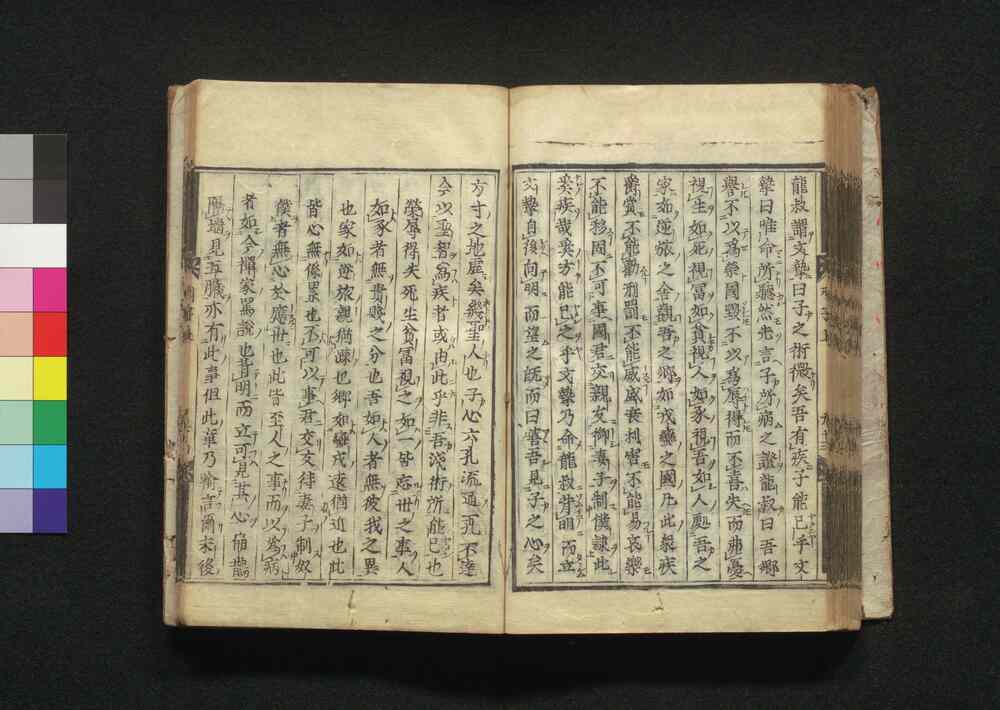 龍叔謂文摯曰子之術微矣吾有疾子能已乎文
摯曰唯命所聽然先言子所病之證龍叔曰吾鄉
譽不以爲榮國毀不以爲辱得而不喜失而弗憂
視生如死視冨如貧視人如豕視吾如人處吾之
家如逆旅之舎觀吾之鄉如戎蠻之國凡此衆疾
爵賞不能勸刑罰不能威盛衰利害不能易哀樂
不能移固不可事國君交親友御妻子制僕隷此
奚疾哉奚方能已之乎文摯乃命龍叔背明而立
文摯自後向明而望之既而曰嘻吾見子之心矣
方寸之地虛矣幾聖人也子心六孔流通一孔不達
今以聖智爲疾者或由此乎非吾淺術所能已也
榮辱得失死生貧冨視之如一皆忘世之事人
如豕者無貴賤之分也吾如人者無彼我之異
也家如逆旅親猶疎也鄉如蠻戎遠猶近也此
皆心無係累也不可以事君交友待妻子制奴
僕者無心於應世也此皆至人之事而以爲病
者如今禪家罵說也背明而立可見其心
墻見五臟亦有此事但此章乃喻言爾末後